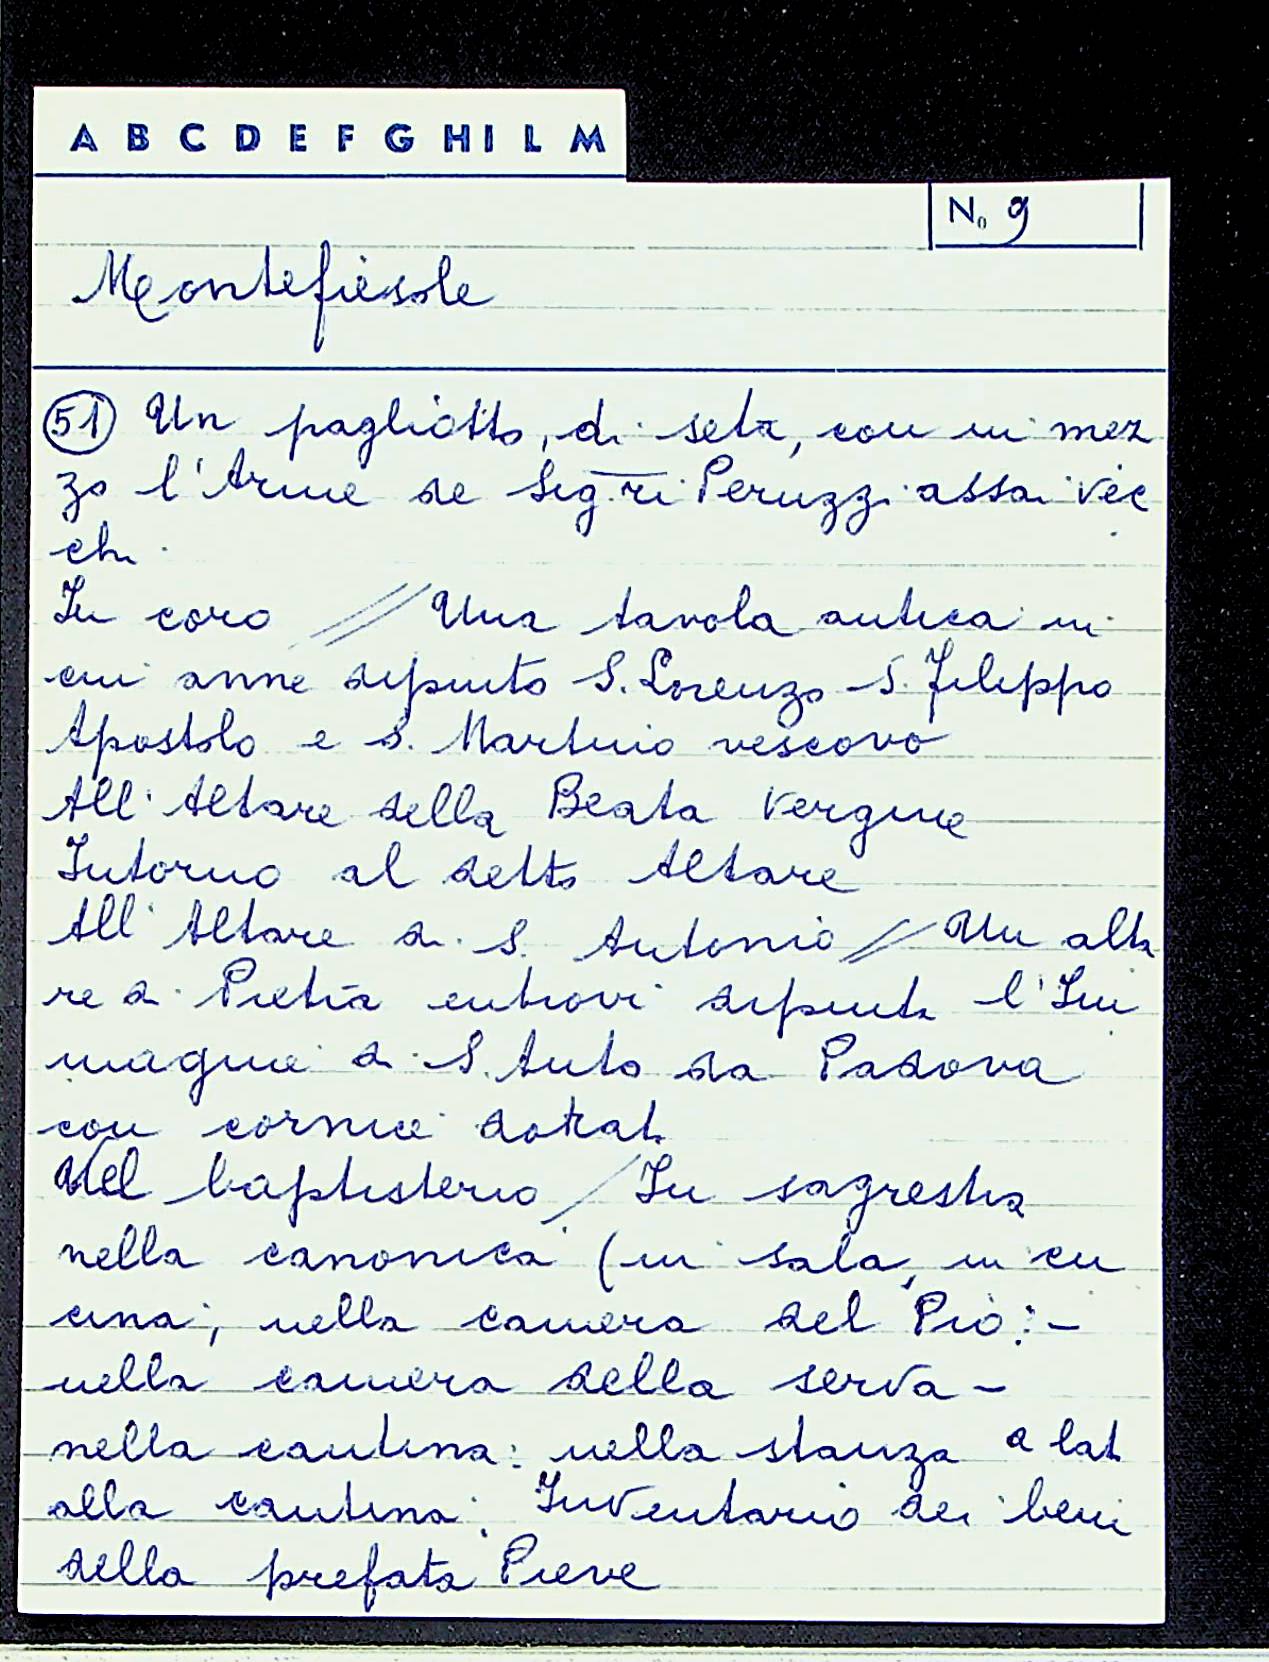 A B C D E F G H I L M
No 9
Montefiesole
51 Un pagliotto, di seta, con in mez
zo l'Arme de Sigri Peruzzi assai vec
chi
In coro // Una tavola antica in
cui anne dipinto S. Lorenzo S. Filippo
Apostolo e S. Martino vescovo
All'Altare della Beata Vergine
Intorno al detto Altare
All'Altare di S. Antonio // Un alta
re di Pietra entrovi dipinta l'Im
magine di S. Anto da Padova
con cornice dorat
Nel baptisterio / In sagrestia
nella canonica (in sala, in cu
cina, nella camera del Pio: -
nella camera della serva -
nella cantina: nella stanza a lat
alla cantina. Inventario dei beni
della prefata Pieve